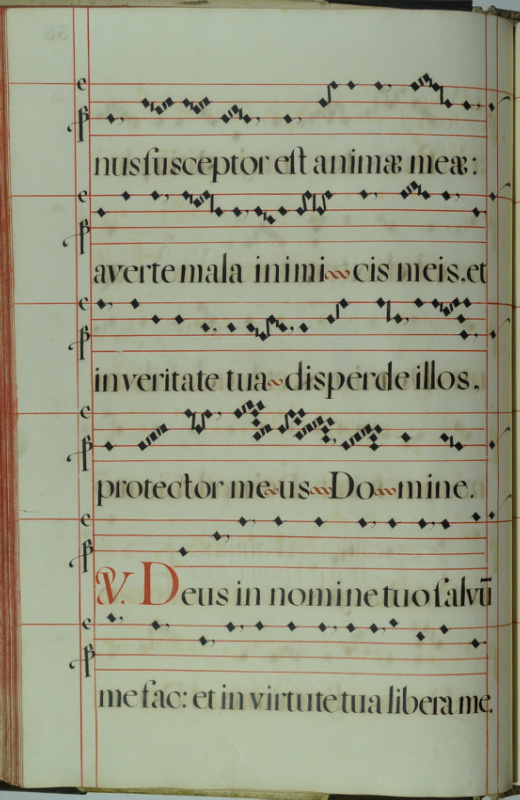 nus susceptor est animæ meæ:
averte mala inimicis meis, et
in veritate tua disperde illos,
protector meus Domine.
℣. Deus in nomine tuo salvū
me fac: et in virtute tua libera me.